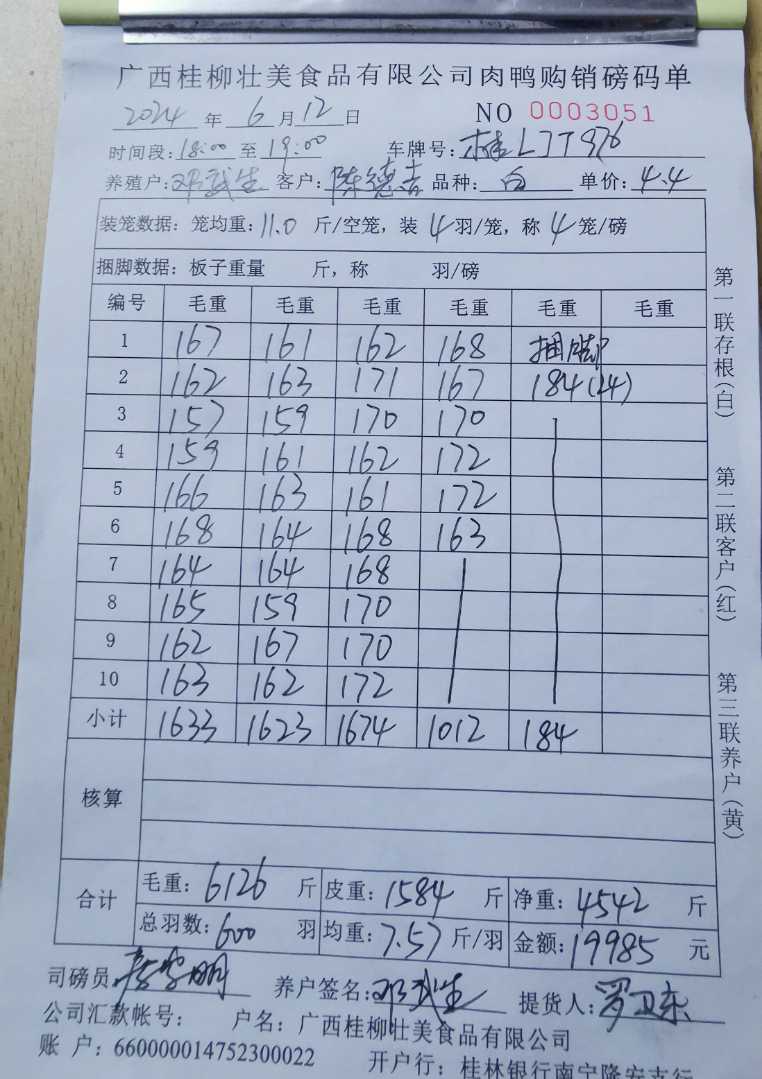 广西桂柳壮美食品有限公司肉鸭购销磅码单
2024 年 6 月 12 日 NO 0003051
时间段: 18:00 至 19:00 车牌号: 桂LJT976
养殖户: 邓武生 客户: 陈德吉 品种: 白 单价: 4.4
装笼数据: 笼均重: 11.0 斤/空笼, 装 4 羽/笼, 称 4 笼/磅
捆脚数据: 板子重量 斤, 称 羽/磅
编号 毛重 毛重 毛重 毛重 毛重 毛重
1 167 161 162 168 捆脚
2 162 163 171 167 184(24)
3 157 159 170 170
4 159 161 162 172
5 166 163 161 172
6 168 164 168 163
7 164 164 168
8 165 159 170
9 162 167 170
10 163 162 172
小计 1633 1623 1674 1012 184
核算
合计 毛重: 6126 斤 皮重: 1584 斤 净重: 4542 斤
总羽数: 600 羽 均重: 7.57 斤/羽 金额: 19985 元
司磅员: 养户签名: 邓武生 提货人: 罗卫东
公司汇款帐号: 户名: 广西桂柳壮美食品有限公司
账 户: 660000014752300022 开户行: 桂林银行南宁隆安支行
第一联存根(白)
第二联客户(红)
第三联养户(黄)